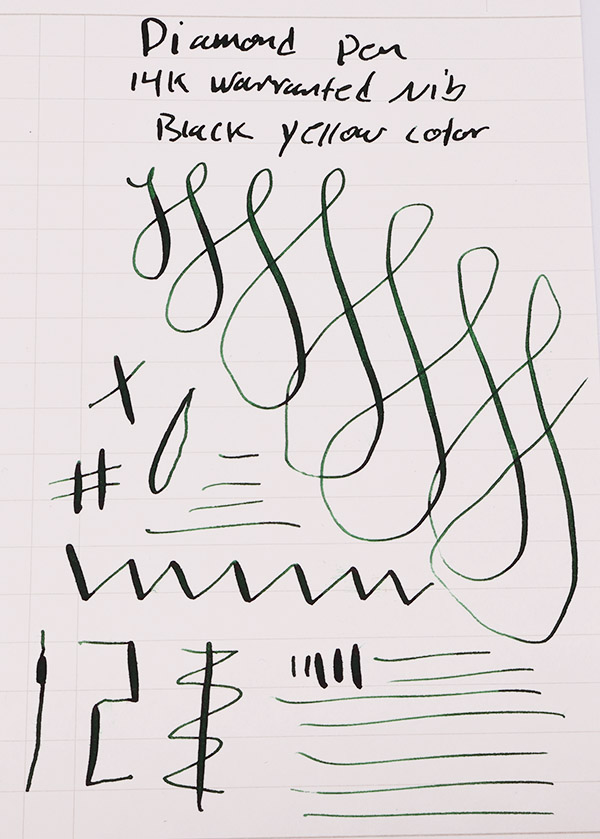 Diamond Pen
14K warranted Nib
Black yellow color